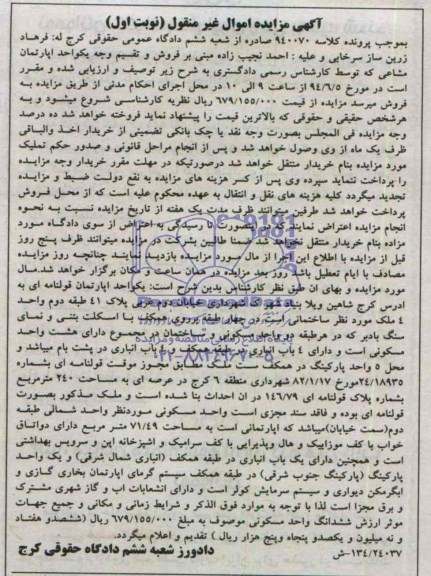 آگهی مزایده اموال غیر منقول (نوبت اول)
بموجب پرونده کلاسه ۹۴۰۰۷۰ صادره از شعبه ششم دادگاه عمومی حقوقی کرج له: فرهاد
زرین ساز سرخابی و علیه : احمد نجیب زاده مبنی بر فروش و تقسیم وجه یکواحد اپارتمان
مشاعی که توسط کارشناس رسمی دادگستری به شرح زیر توصیف و ارزیابی شده و مقرر
است در مورخ ۹۴/۶/۵ از ساعت ۹ الی ۱۰ در محل اجرای احکام مدنی از طریق مزایده به
فروش میرسد مزایده از قیمت ۶۷۹/۱۵۵/۰۰۰ ریال نظریه کارشناسی شروع میشود و به
هرشخص حقیقی و حقوقی که بالاترین قیمت را پیشنهاد نماید فروخته خواهد شد ده درصد
وجه مزایده فی المجلس بصورت وجه نقد یا چک بانکی تضمینی از خریدار اخذ والباقی
ظرف یک ماه از وی وصول خواهد شد و پس از انجام مراحل قانونی و صدور حکم تملیک
مورد مزایده بنام خریدار منتقل خواهد شد درصورتیکه در مهلت مقرر خریدار وجه مزایده
را پرداخت ننماید سپرده وی پس از کسر هزینه های مزایده به نفع دولت ضبط و مزایده
تجدید میگردد کلیه هزینه های نقل و انتقال به عهده محکوم علیه است که از محل فروش
پرداخت خواهد شد طرفین میتوانند ظرف مدت یک هفته از تاریخ مزایده نسبت به نحوه
انجام مزایده اعتراض نمایند که در اینصورت تا رسیدگی به اعتراض از سوی دادگاه مورد
مزاده بنام خریدار منتقل نخواهد شد ضمنا طالبین بشرکت در مزایده میتوانند ظرف پنج روز
قبل از مزایده با اطلاع این اجرا از مال مورد مزایده بازدید نمایند چنانچه روز مزایده
مصادف با ایام تعطیل باشد روز بعد مزایده در همان ساعت و مکان برگزار خواهد شد.مال
مورد مزایده و بهای ان طبق نظر کارشناس بدین شرح است: یکواحد اپارتمان قولنامه ای به
ادرس کرج شاهین ویلا بنیاد شهرک شهرداری خیابان دوم غربی پلاک ۴۱ طبقه دوم واحد
۴ ملک مورد نظر ساختمانی است در چهار طبقه برروی همکف با اسکلت بتنی و نمای
سنگ بادبر که در هرطبقه دو واحد مسکونی و ساختمان در مجموع دارای هشت واحد
مسکونی است و دارای ۴ باب انباری در طبقه همکف و ۴ باب انباری در پشت بام میباشد و
محل ۵ واحد پارکینگ در همکف است که مطابق مجوز موقت قولنامه ای بشماره
۲۴/۱۸۹۳۵مورخ ۸۲/۱/۱۷ شهرداری منطقه ۶ کرج در عرصه ای به مساحت ۲۴۰ مترمربع
بشماره پلاک قولنامه ای ۱۴۶/۷۹ در ان احداث بنا شده است و ملک مذکور بصورت
قولنامه ای بوده و فاقد سند مجزی است واحد مسکونی موردنظر واحد شمالی طبقه
دوم(سمت خیابان)میباشد که اپارتمانی است به مساحت ۷۱/۴۹ متر مربع دارای دواتاق
خواب با کف موزاییک و هال وپذیرایی با کف سرامیک و اشپزخانه اپن و سرویس بهداشتی
است و همچنین دارای یک باب انباری در طبقه همکف (انباری شمال شرقی) و یک واحد
پارکینگ (پارکینگ جنوب شرقی) در طبقه همکف سیستم گرمای اپارتمان بخاری گازی و
ابگرمکن دیواری و سیستم سرمایش کولر است و دارای انشعابات اب و گاز شهری مشترک
و برق مجزا است لذا با توجه به موارد فوق الذکر و شرایط زمانی و مکانی و جمیع جهات
موثر ارزش ششدانگ واحد مسکونی موصوف به مبلغ ۶۷۹/۱۵۵/۰۰۰ ریال (ششصدو هفتاد
و نه میلیون و یکصدو پنجاه وپنج هزار ریال ) تقدیم و اعلام میگردد.
۱۳۴/۲۴۰۳۷-ش دادورز شعبه ششم دادگاه حقوقی کرج